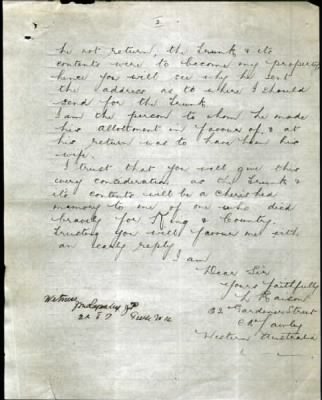 2
he not return, the trunk & its
contents were to become my property
hence you will see why he sent
the address as to where I should
send for the trunk
I am the person to whom he made
his allottment in favour of & at
his return was to have been his
wife.
I trust that you will give this
every consideration as the trunk &
its contents will be a cherished
memory to me of one who died
bravely for King & Country.
Trusting you will favour me with
an early reply
I am
Dear Sir
Yours faithfully
L
32 Gardiner Street
Cowley
Western Australia
Witness